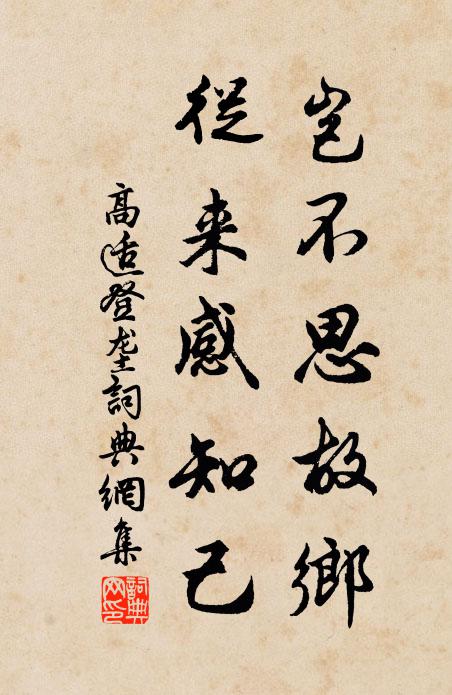 豈不思故鄉
從来感知己
高適登垄詞典網集
詞典
网印